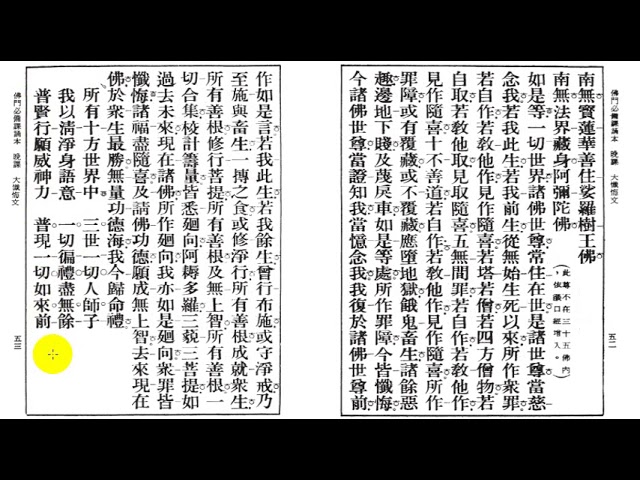 佛門必備課誦本 晚課 大懺悔文
五二
南無寶蓮華善住娑羅樹王佛
南無法界藏身阿彌陀佛
(此尊不在三十五佛內
,依瑜口經增入。)
如是等一切世界諸佛世尊常住在世是諸世尊當慈
念我若我此生若我前生從無始生死以來所作衆罪
若自作若教他作見作隨喜若塔若僧若四方僧物若
自取若教他取見取隨喜五無間罪若自作若教他作
見作隨喜十不善道若自作若教他作見作隨喜所作
罪障或有覆藏或不覆藏應墮地獄餓鬼畜生諸餘惡
趣邊地下賤及蔑戾車如是等處所作罪障今皆懺悔
今諸佛世尊當證知我當憶念我我復於諸佛世尊前
作如是言若我此生若我餘生曾行布施或守淨戒乃
至施與畜生一摶之食或修淨行所有善根成就衆生
所有善根修行菩提所有善根及無上智所有善根一
切合集校計籌量皆悉廻向阿耨多羅三藐三菩提如
過去未來現在諸佛所作廻向我亦如是廻向衆罪皆
懺悔諸福盡隨喜及請佛功德願成無上智去來現在
佛於衆生最勝無量功德海我今歸命禮
所有十方世界中 三世一切人師子
我以清淨身語意 一切徧禮盡無餘
普賢行願威神力 普現一切如來前
佛門必備課誦本 晚課 大懺悔文
五三